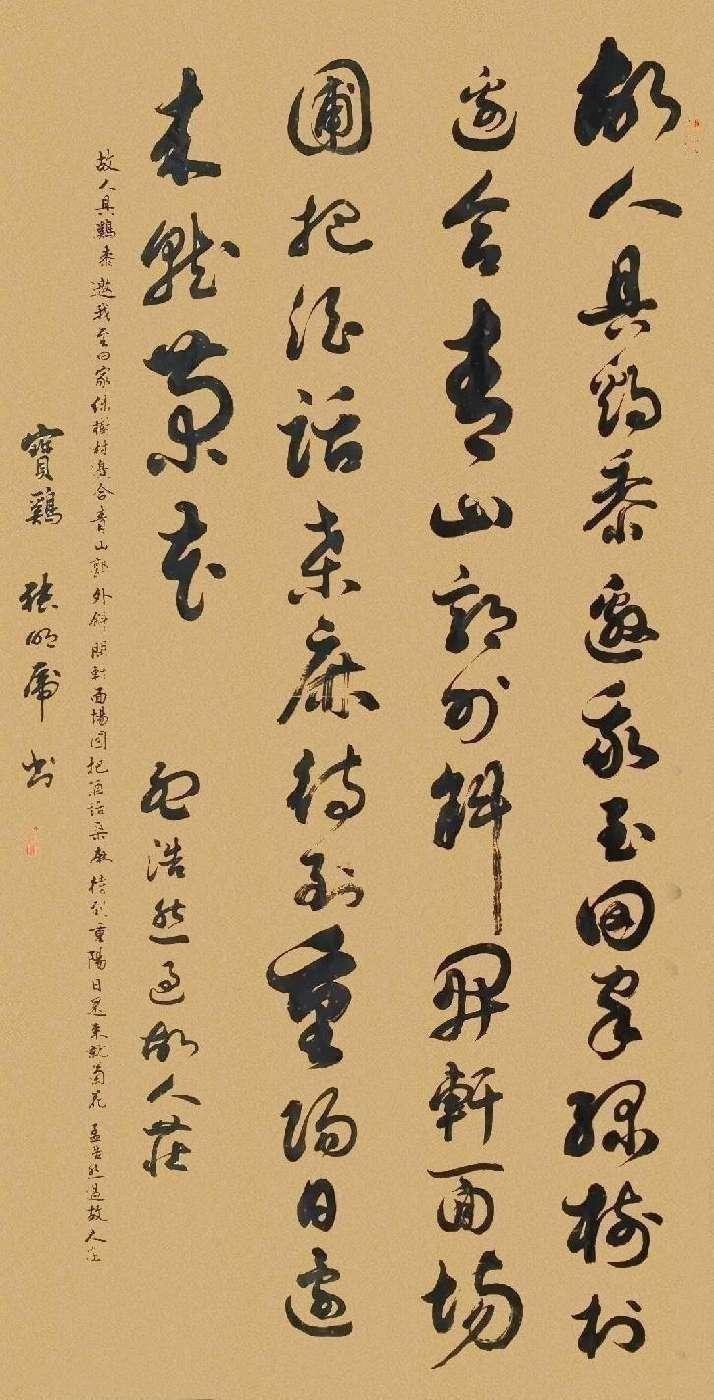 故人具鷄黍邀我至田家綠樹村
邊合青山郭外斜開軒面場
圃把酒話桑麻待到重陽日還
來就菊花 孟浩然過故人莊
故人具鷄黍邀我至田家綠樹村邊合青山郭外斜開軒面場圃把酒話桑麻待到重陽日還來就菊花 孟浩然過故人莊
寶鷄 明 書